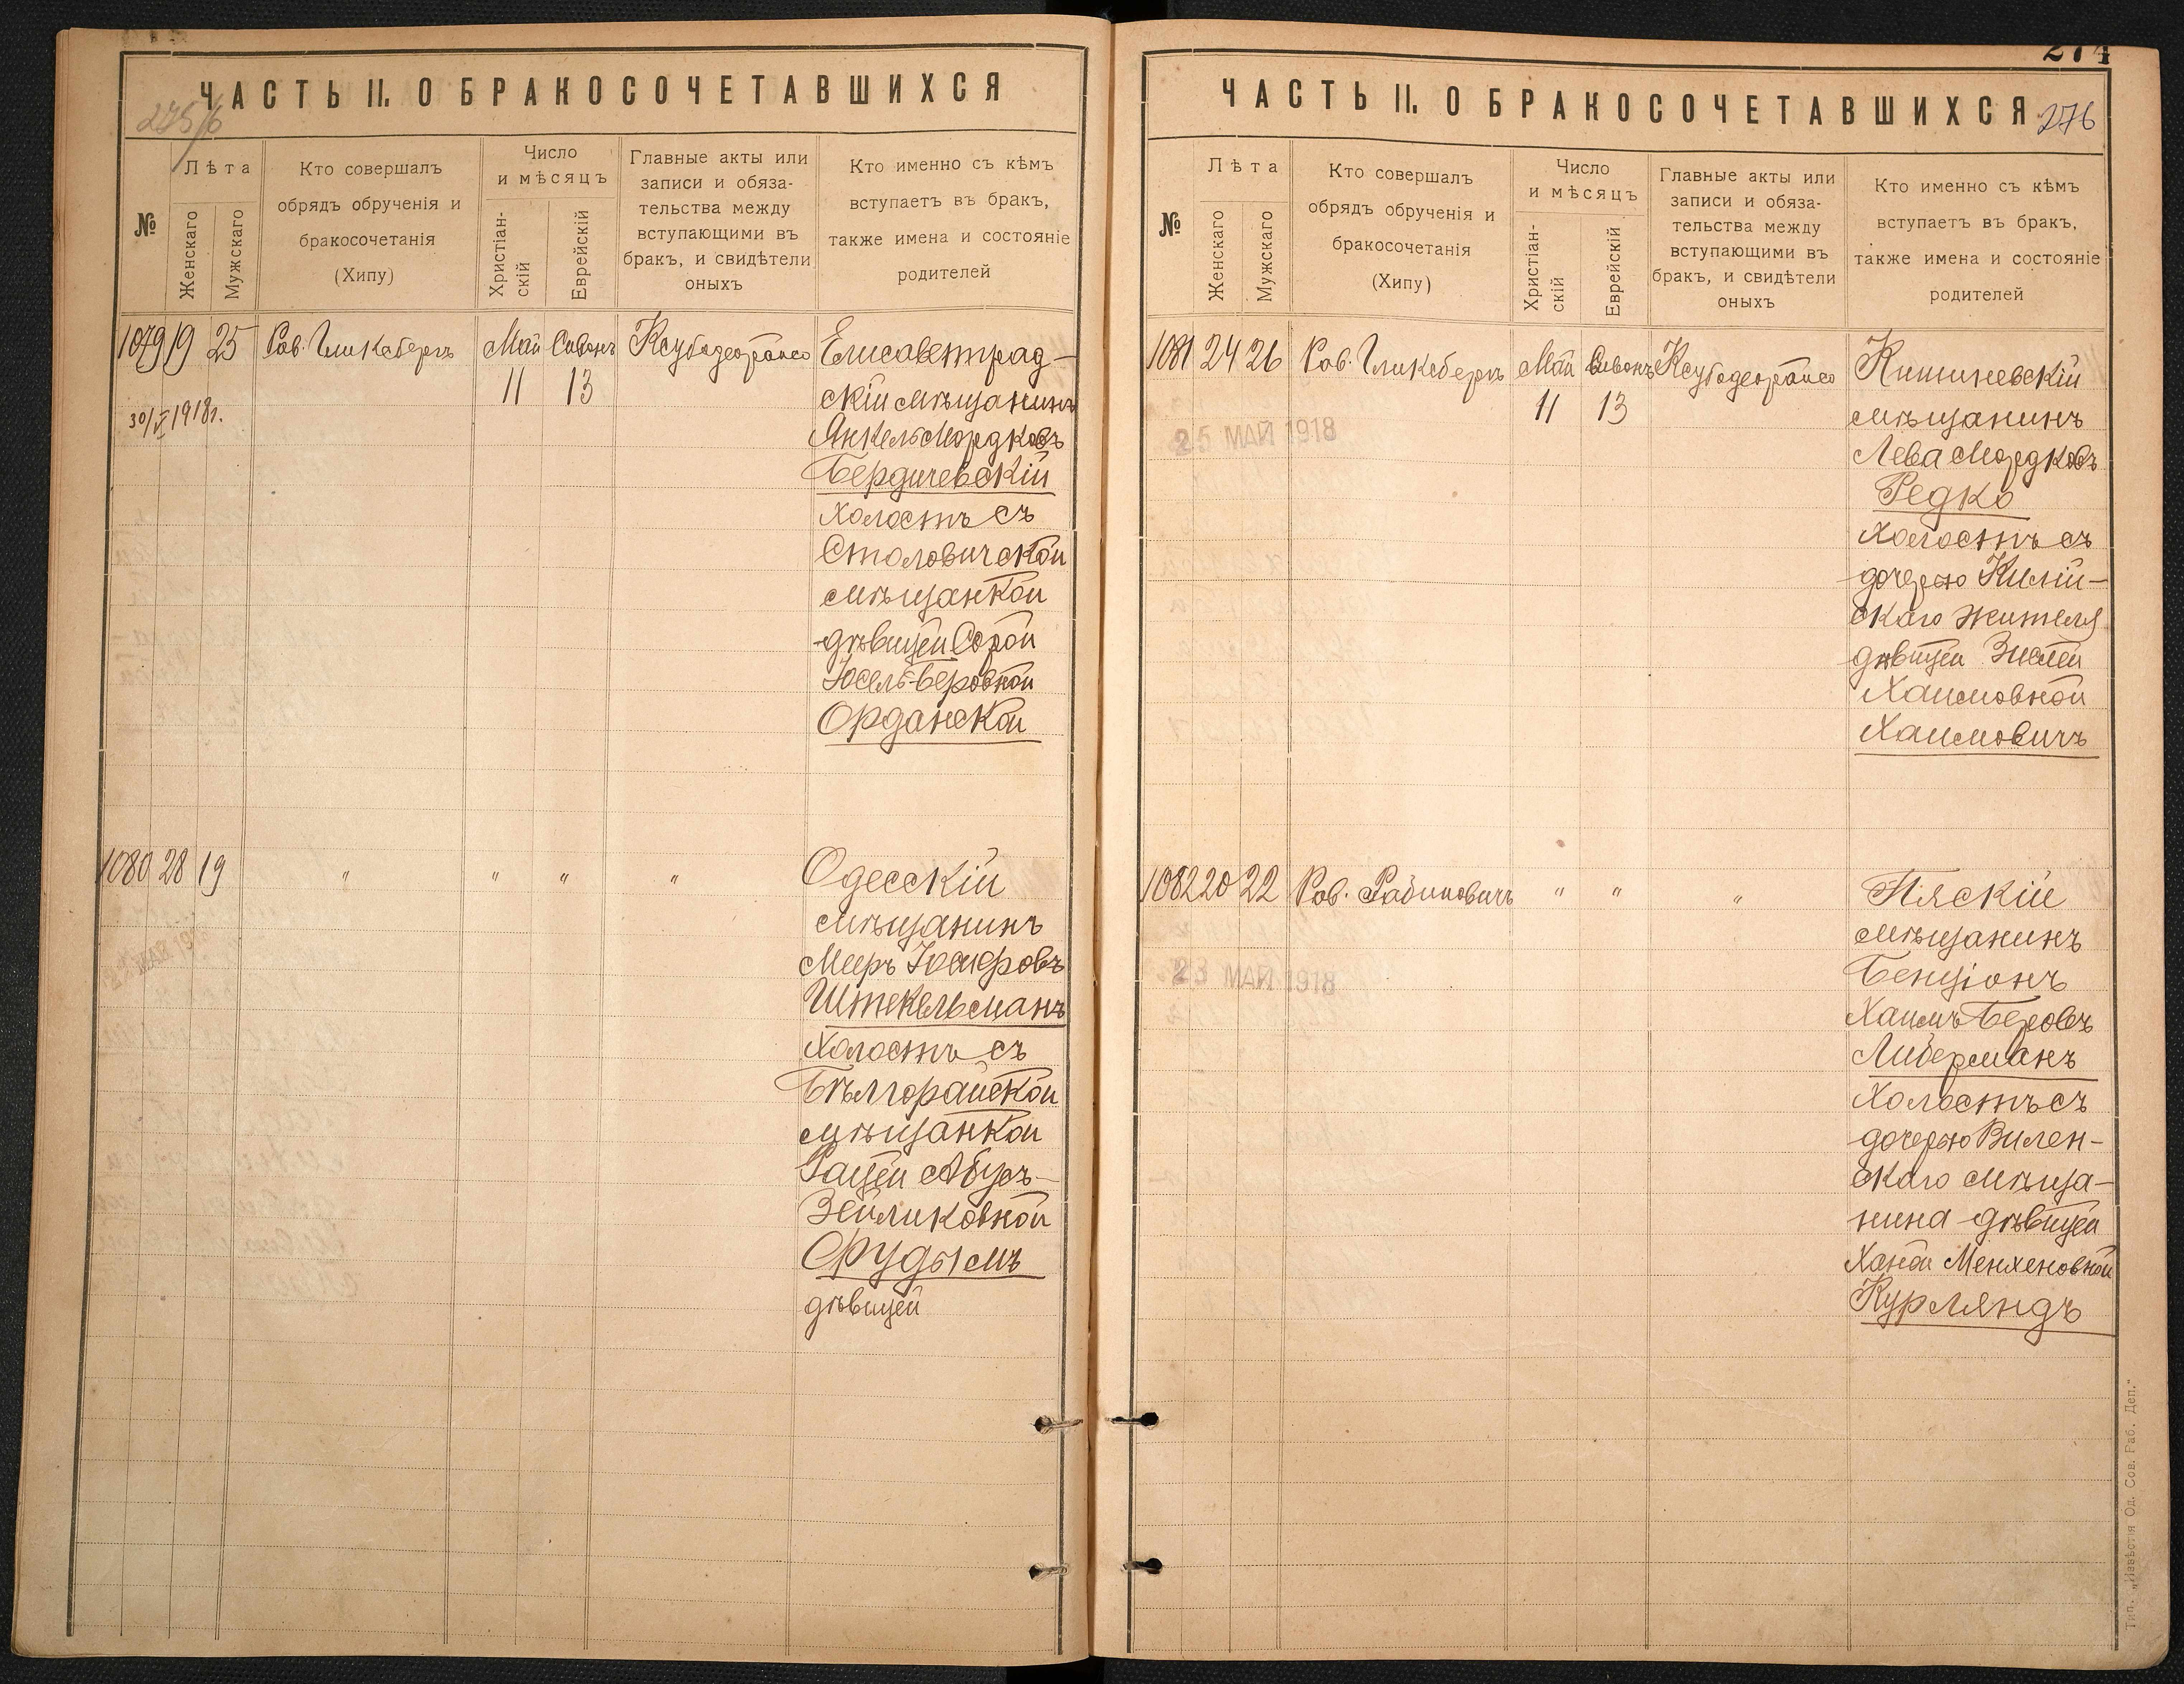 ЧАСТЬ II. О БРАКОСОЧЕТАВШИХСЯ
№
Лѣта
Женскаго
Мужскаго
Кто совершалъ
обрядъ обрученія и
бракосочетанія
(Хипу)
Число
и мѣсяцъ
Христіан-
скій
Еврейскій
Главные акты или
записи и обяза-
тельства между
вступающими въ
бракъ, и свидѣтели
оныхъ
Кто именно съ кѣмъ
вступаетъ въ бракъ,
также имена и состояніе
родителей
1079 19 25 Рав. Гликсбергъ Май Сивонъ Елисаветград-
11 13 скій мѣщанинъ
30/V 1918 г.
Янкель Мордковъ
Бердичевскій
холостъ съ
Столовичской
мѣщанкой
дѣвицей Сорой
Іосель-Беровной
Орданской
1080 28 19 " " " " Одесскій
мѣщанинъ
Мееръ Іосифовъ
Штекельманъ
холостъ съ
Бѣлгорайской
мѣщанкой
Зейликовной
Фудымъ
дѣвицей
274
ЧАСТЬ II. О БРАКОСОЧЕТАВШИХСЯ
276
№
Лѣта
Женскаго
Мужскаго
Кто совершалъ
обрядъ обрученія и
бракосочетанія
(Хипу)
Число
и мѣсяцъ
Христіан-
скій
Еврейскій
Главные акты или
записи и обяза-
тельства между
вступающими въ
бракъ, и свидѣтели
оныхъ
Кто именно съ кѣмъ
вступаетъ въ бракъ,
также имена и состояніе
родителей
1081 24 26 Рав. Гликсбергъ Май Сивонъ Кишиневскій
11 13 мѣщанинъ
25 МАЙ 1918
Лева Мордковъ
Редко
холостъ съ
дочерью Килій-
скаго жителя
дѣвицей Зислей
Хаимовной
Хаимовичъ
1082 20 22 Рав. Рабиновичъ " " " Пяскій
мѣщанинъ
23 МАЙ 1918
Бенціонъ
Хаимъ Беровъ
Либерманъ
холостъ съ
дочерью Вилен-
скаго мѣща-
нина дѣвицей
Ханой Менхеновной
Курляндъ
Тип. „Извѣстія Од. Сов. Раб. Деп."